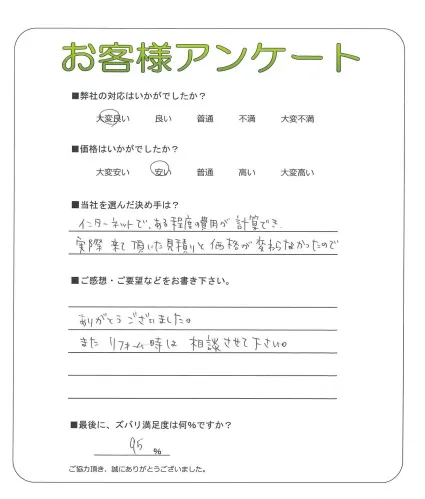 お客様アンケート
■弊社の対応はいかがでしたか？
大変良い 良い 普通 不満 大変不満
■価格はいかがでしたか？
大変安い 安い 普通 高い 大変高い
■当社を選んだ決め手は？
インターネットで、ある程度の費用が計算でき、
実際来て頂いた見積りと価格が変わらなかったので
■ご感想・ご要望などをお書き下さい。
ありがとうございました。
またリフォーム時は相談させて下さい。
■最後に、ズバリ満足度は何％ですか？
95 %
ご協力頂き、誠にありがとうございました。